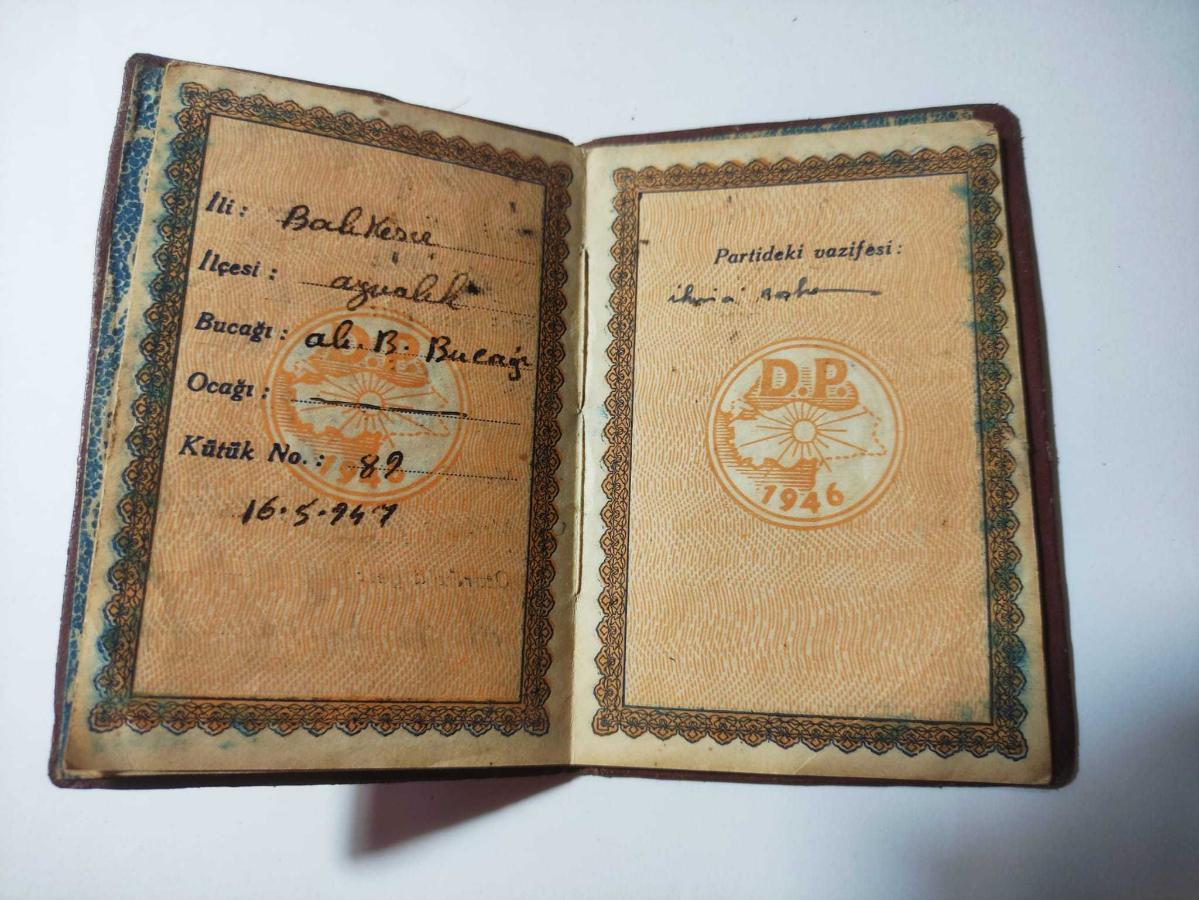 İli: Balıkesir
İlçesi: ayvalık
Bucağı: alı. B. Bucağı
Ocağı:
Kütük No.: 89
16.5.947
D.P.
1946
Partideki vazifesi:
D.P.
1946